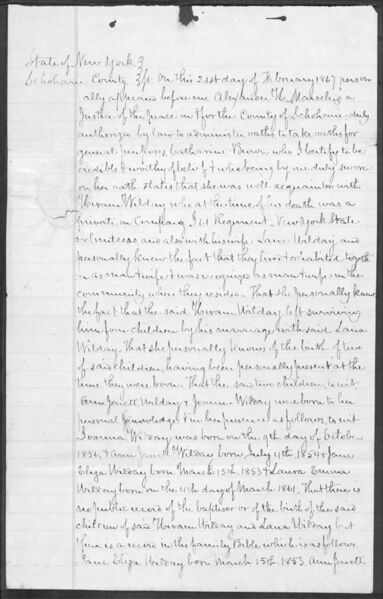 State of New York }
Schoharie County } ss. On this 21st day of February 1867 person
ally appeared before me Alexander H. a
Justice of the peace in & for the County of Schoharie duly
authorized by law to administer oaths to take oaths for
general purposes, Catharine Brown who I certify to be
credible & worthy of belief & who being by me duly sworn
on her oath states that she was well acquainted with
Hiram Wilday who at the time of his death was a
private in Company I 61 Regiment, New York State
volunteers and also with his wife Lana Wilday and
personally knew the fact that they lived & cohabited togeth
er as man & wife & was recognized as man & wife in the
community where they resided. That she personally knew
the fact that the said Hiram Wilday, left surviving
him four children by his marriage with said Lana
Wilday. That she personally knows of the birth of two
of said children, having been personally present at the
time they were born. That the said two children, to wit
Ann Jenett Wilday & Joanna Wilday were born to her
personal knowledge & in her presence as follows, to wit
Joanna Wilday was born on the 9th day of October
1856, & Ann Janett Wilday born July 4th 1854 & Jane
Eliza Wilday born March 15th 1853 & Laura Emma
Wilday born on the 4th day of March 1861. That there is
no public record of the baptism or of the birth of the said
children of said Hiram Wilday and Lana Wilday but
there is a record in the family Bible which is as follows
Jane Eliza Wilday born March 15th 1853. Ann Jenett